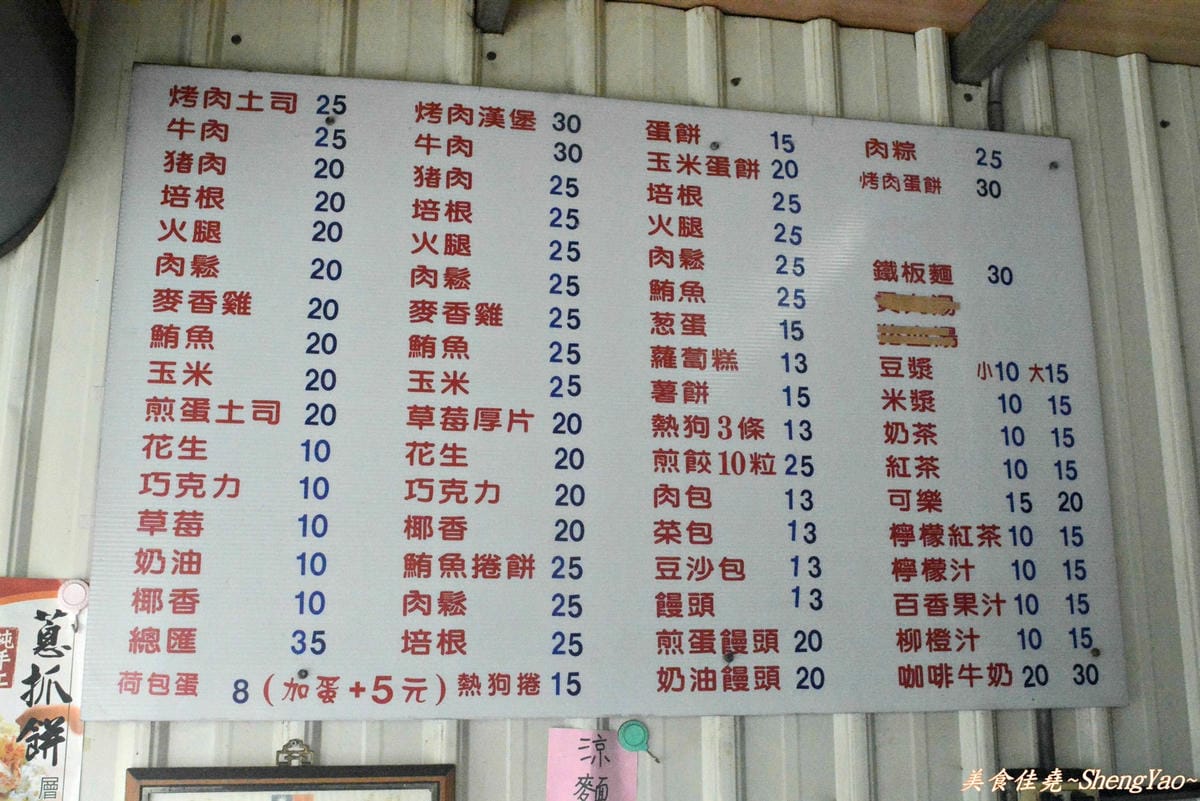 烤肉土司 25
牛肉 25
猪肉 20
培根 20
火腿 20
肉鬆 20
麥香雞 20
鮪魚 20
玉米 20
煎蛋土司 20
花生 10
巧克力 10
草莓 10
奶油 10
椰香 10
總匯 35
荷包蛋 8 (加蛋+5元)
烤肉漢堡 30
牛肉 30
猪肉 25
培根 25
火腿 25
肉鬆 25
麥香雞 25
鮪魚 25
玉米 25
草莓厚片 20
花生 20
巧克力 20
椰香 20
鮪魚捲餅 25
肉鬆 25
培根 25
熱狗捲 15
蛋餅 15
玉米蛋餅 20
培根 25
火腿 25
肉鬆 25
鮪魚 25
葱蛋 15
蘿蔔糕 13
薯餅 15
熱狗3條 13
煎餃10粒 25
肉包 13
菜包 13
豆沙包 13
饅頭 13
煎蛋饅頭 20
奶油饅頭 20
肉粽 25
烤肉蛋餅 30
鐵板麵 30
豆漿 小10 大15
米漿 10 15
奶茶 10 15
紅茶 10 15
可樂 15 20
檸檬紅茶 10 15
檸檬汁 10 15
百香果汁 10 15
柳橙汁 10 15
咖啡牛奶 20 30
蔥抓餅
純手工
層
涼麵
美食佳堯~ShengYao~